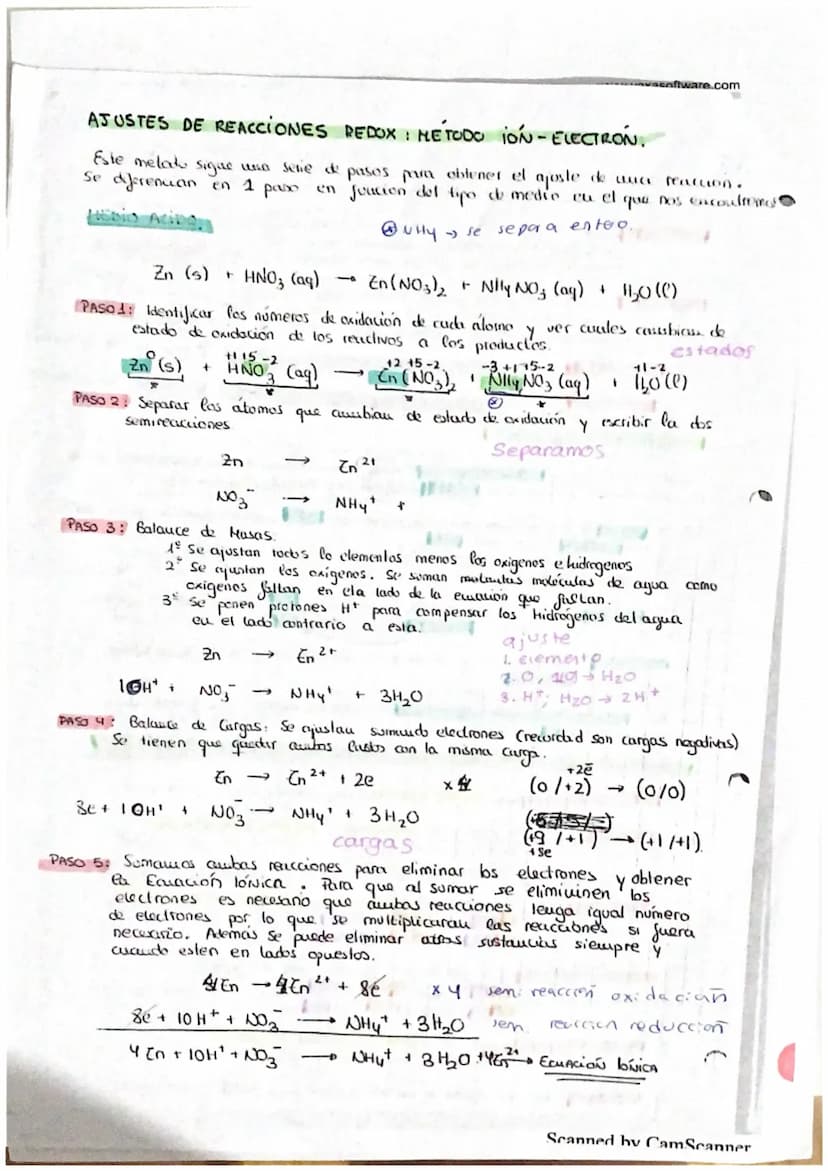 asoftware.com
AJUSTES DE REACCIONES REDOX: MÉTODO IÓN-ELECTRÓN.
Este método sigue una serie de pasos para obtener el ajuste de una reacción.
Se diferencian en 1 paso en función del tipo de medio en el que nos encontremos
MEDIO ÁCIDO.
⊛ NH4 → se separa entero.
Zn (s) + HNO3 (aq) → Zn(NO3)2 + NH4NO3 (aq) + H2O(l)
PASO 1: Identificar los números de oxidación de cada átomo y ver cuales cambian de
estado de oxidación de los reactivos a los productos.
estados
0 +1+5-2 +2 +5-2 -3+1+5-2 +1-2
Zn (s) + HNO3 (aq) → Zn(NO3)2 + NH4NO3 (aq) + H2O(l)
PASO 2: Separar los átomos que cambian de estado de oxidación y escribir la dos
semireacciones
Separamos
Zn → Zn2+
NO3- → NH4+ +
PASO 3: Balance de Masas.
1º Se ajustan todos lo elementos menos los oxigenos e hidrogenos
2º Se ajustan los oxígenos. Se suman moléculas de agua como
oxigenos faltan en el lado de la ecuación que faltan.
3º Se ponen protones H+ para compensar los Hidrógenos del agua
en el lado contrario a esta.
ajuste
Zn → Zn2+
1. elemento
2. O, → H2O
10H+ + NO3- → NH4+ + 3H2O
3. H+; H2O → 2H+
PASO 4: Balance de Cargas: Se ajustan sumando electrones (recordad son cargas negativas)
Se tienen que quedar ambos lados con la misma carga.
+2e-
Zn → Zn2+ + 2e x 4 (0/+2) → (0/0)
8e + 10H+ + NO3- → NH4+ + 3H2O
(+9/+1) → (+1/+1).
+8e
cargas
PASO 5: Sumamos ambas reacciones para eliminar los electrones y obtener
la Ecuación Iónica. Para que al sumar se elimiinen los
electrones es necesario que ambas reacciones tenga igual número
de electrones por lo que se multiplicaran las reacciones si fuera
necesario. Además se puede eliminar otras sustancias siempre y
cuando esten en lados opuestos.
4Zn → 4Zn2+ + 8e- x 4 semi reacción oxidación
8e- + 10H+ + NO3- → NH4+ + 3H2O semi reaccion reducción
4Zn + 10H+ + NO3- → NH4+ + 3H2O + 4Zn2+ → ECUACIÓN IÓNICA
Scanned by CamScanner